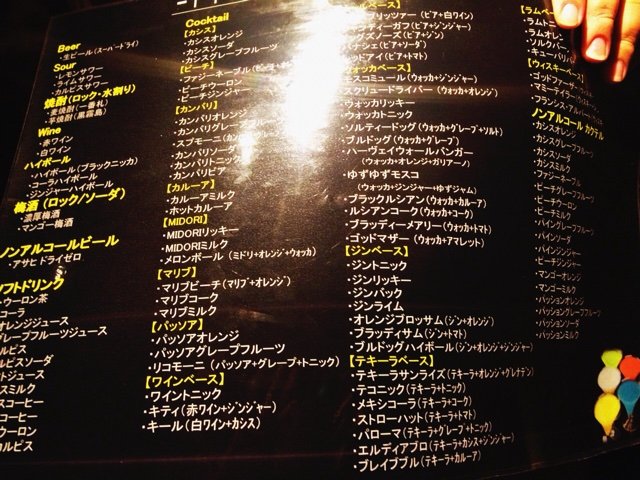 Beer
・生ビール(スーパードライ)
Sour
・レモンサワー
・ライムサワー
・カルピスサワー
焼酎(ロック・水割り)
・麦焼酎(一番札)
・芋焼酎(黒霧島)
Wine
・赤ワイン
・白ワイン
ハイボール
・ハイボール(ブラックニッカ)
・コーラハイボール
・ジンジャーハイボール
梅酒(ロック/ソーダ)
・濃厚梅酒
・マンゴー梅酒
ノンアルコールビール
・アサヒドライゼロ
フトドリンク
ーウーロン茶
コーラ
オレンジジュース
グレープフルーツジュース
ルピス
ルピスソーダ
トジュース
スミルク
スコーヒー
コーヒー
ウーロン
カルピス
Cocktail
【カシス】
・カシスオレンジ
・カシスソーダ
・カシスグレープフルーツ
【ピーチ】
・ファジーネーブル
・ピーチウーロン
・ピーチジンジャー
【カンパリ】
・カンパリオレンジ
・カンパリグレープフルーツ
・スプモーニ
・カンパリソーダ
・カンパリトニック
・カンパリビア
【カルーア】
・カルーアミルク
・ホットカルーア
【MIDORI】
・MIDORIリッキー
・MIDORIミルク
・メロンボール(ミドリ+オレンジ+ウォッカ)
【マリブ】
・マリブピーチ(マリブ+オレンジ)
・マリブコーク
・マリブミルク
【パッソア】
・パッソアオレンジ
・パッソアグレープフルーツ
・リコモーニ(パッソア+グレープ+トニック)
【ワインベース】
・ワイントニック
・キティ(赤ワイン+ジンジャー)
・キール(白ワイン+カシス)
ルベース】
プリッツァー(ビア+白ワイン)
ンディーガフ(ビア+ジンジャー)
ッグズノーズ(ビア+ジン)
パナシェ(ビア+ソーダ)
ッドアイ(ビア+トマト)
ウォッカベース】
モスコミュール(ウォッカ+ジンジャー)
スクリュードライバー(ウォッカ+オレンジ)
・ウォッカリッキー
・ウォッカトニック
・ソルティードッグ(ウォッカ+グレープ+ソルト)
・ブルドッグ(ウォッカ+グレープ)
・ハーヴェイウォールバンガー
(ウォッカ+オレンジ+ガリアーノ)
・ゆずゆずモスコ
(ウォッカ+ジンジャー+ゆずジャム)
・ブラックルシアン(ウォッカ+カルーア)
・ルシアンコーク(ウォッカ+コーク)
・ブラッディーメアリー(ウォッカ+トマト)
・ゴッドマザー(ウォッカ+アマレット)
【ジンベース】
・ジントニック
・ジンリッキー
・ジンバック
・ジンライム
・オレンジブロッサム(ジン+オレンジ)
・ブラッディサム(ジン+トマト)
・ブルドッグハイボール(ジン+オレンジ+ジンジャー)
【テキーラベース】
・テキーラサンライズ(テキーラ+オレンジ+グレナデン)
・テコニック(テキーラ+トニック)
・メキシコーラ(テキーラ+コーク)
・ストローハット(テキーラ+トマト)
・パローマ(テキーラ+グレープ+トニック)
・エルディアブロ(テキーラ+カシス+ジンジャー)
・ブレイブブル(テキーラ+カルーア)
【ラムベース】
・ラムトニ
・ラムオレン
・ソルクバ
・キューバリ
【ウィスキーベース】
・ゴッドファ
・マミーテイラー
・フランシス・アルバー
ノンアルコール カクテル
・カシスオレンジ
・カシスグレープフルーツ
・カシスソーダ
・カシスミルク
・ファジーネーブル
・ピーチグレープフルーツ
・ピーチウーロン
・ピーチミルク
・パイングレープフルーツ
・パインソーダ
・パインジンジャー
・ピーチジンジャー
・マンゴーオレンジ
・マンゴーミルク
・パッションオレンジ
・パッショングレープフルーツ
・パッションソーダ
・パッションミルク